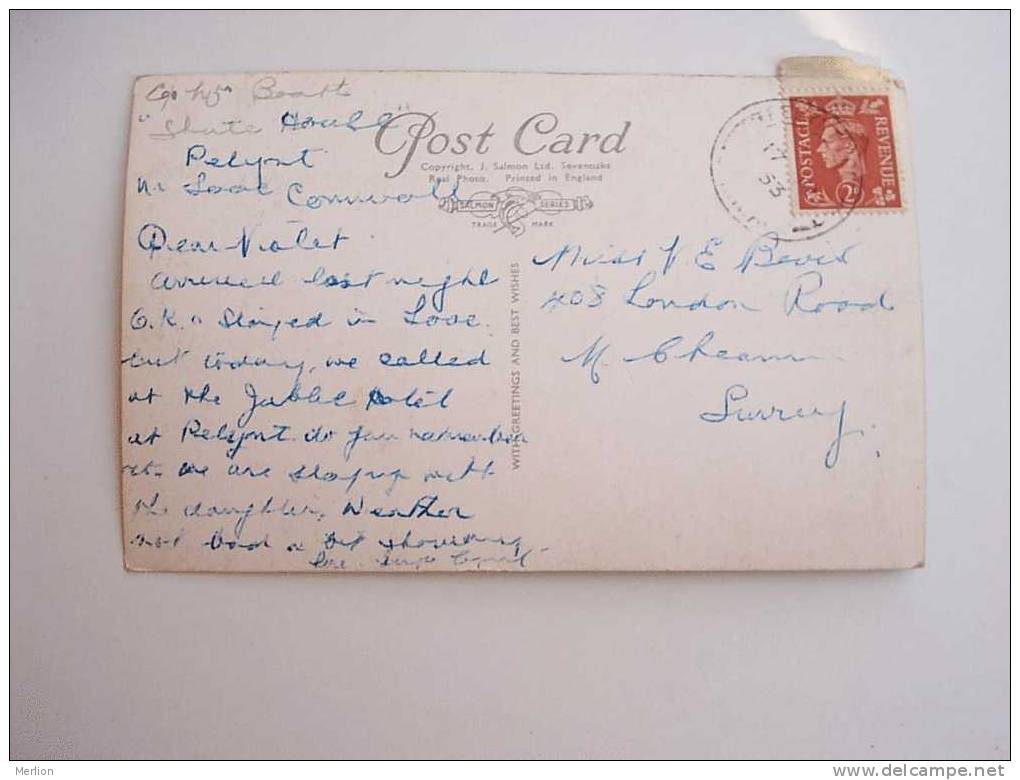 C/o Mrs Boatt
"Shute House"
Pelynt
Nr Looe Cornwall
Post Card
Copyright. J. Salmon Ltd. Sevenoaks
Real Photo. Printed in England
SALMON SERIES
TRADE MARK
POSTAGE REVENUE
2D
17
53
Dear Violet.
Arrived last night
O.K. Stayed in Looe.
but today, we called
at the Jublee Hotel
at Pelynt. do you remember
it. we are staying with
the daughter, Weather
not bad a bit showery
WITH GREETINGS AND BEST WISHES
Miss V E Bevis
408 London Road
N. Cheam
Surrey.
Merlion
delcampe.net